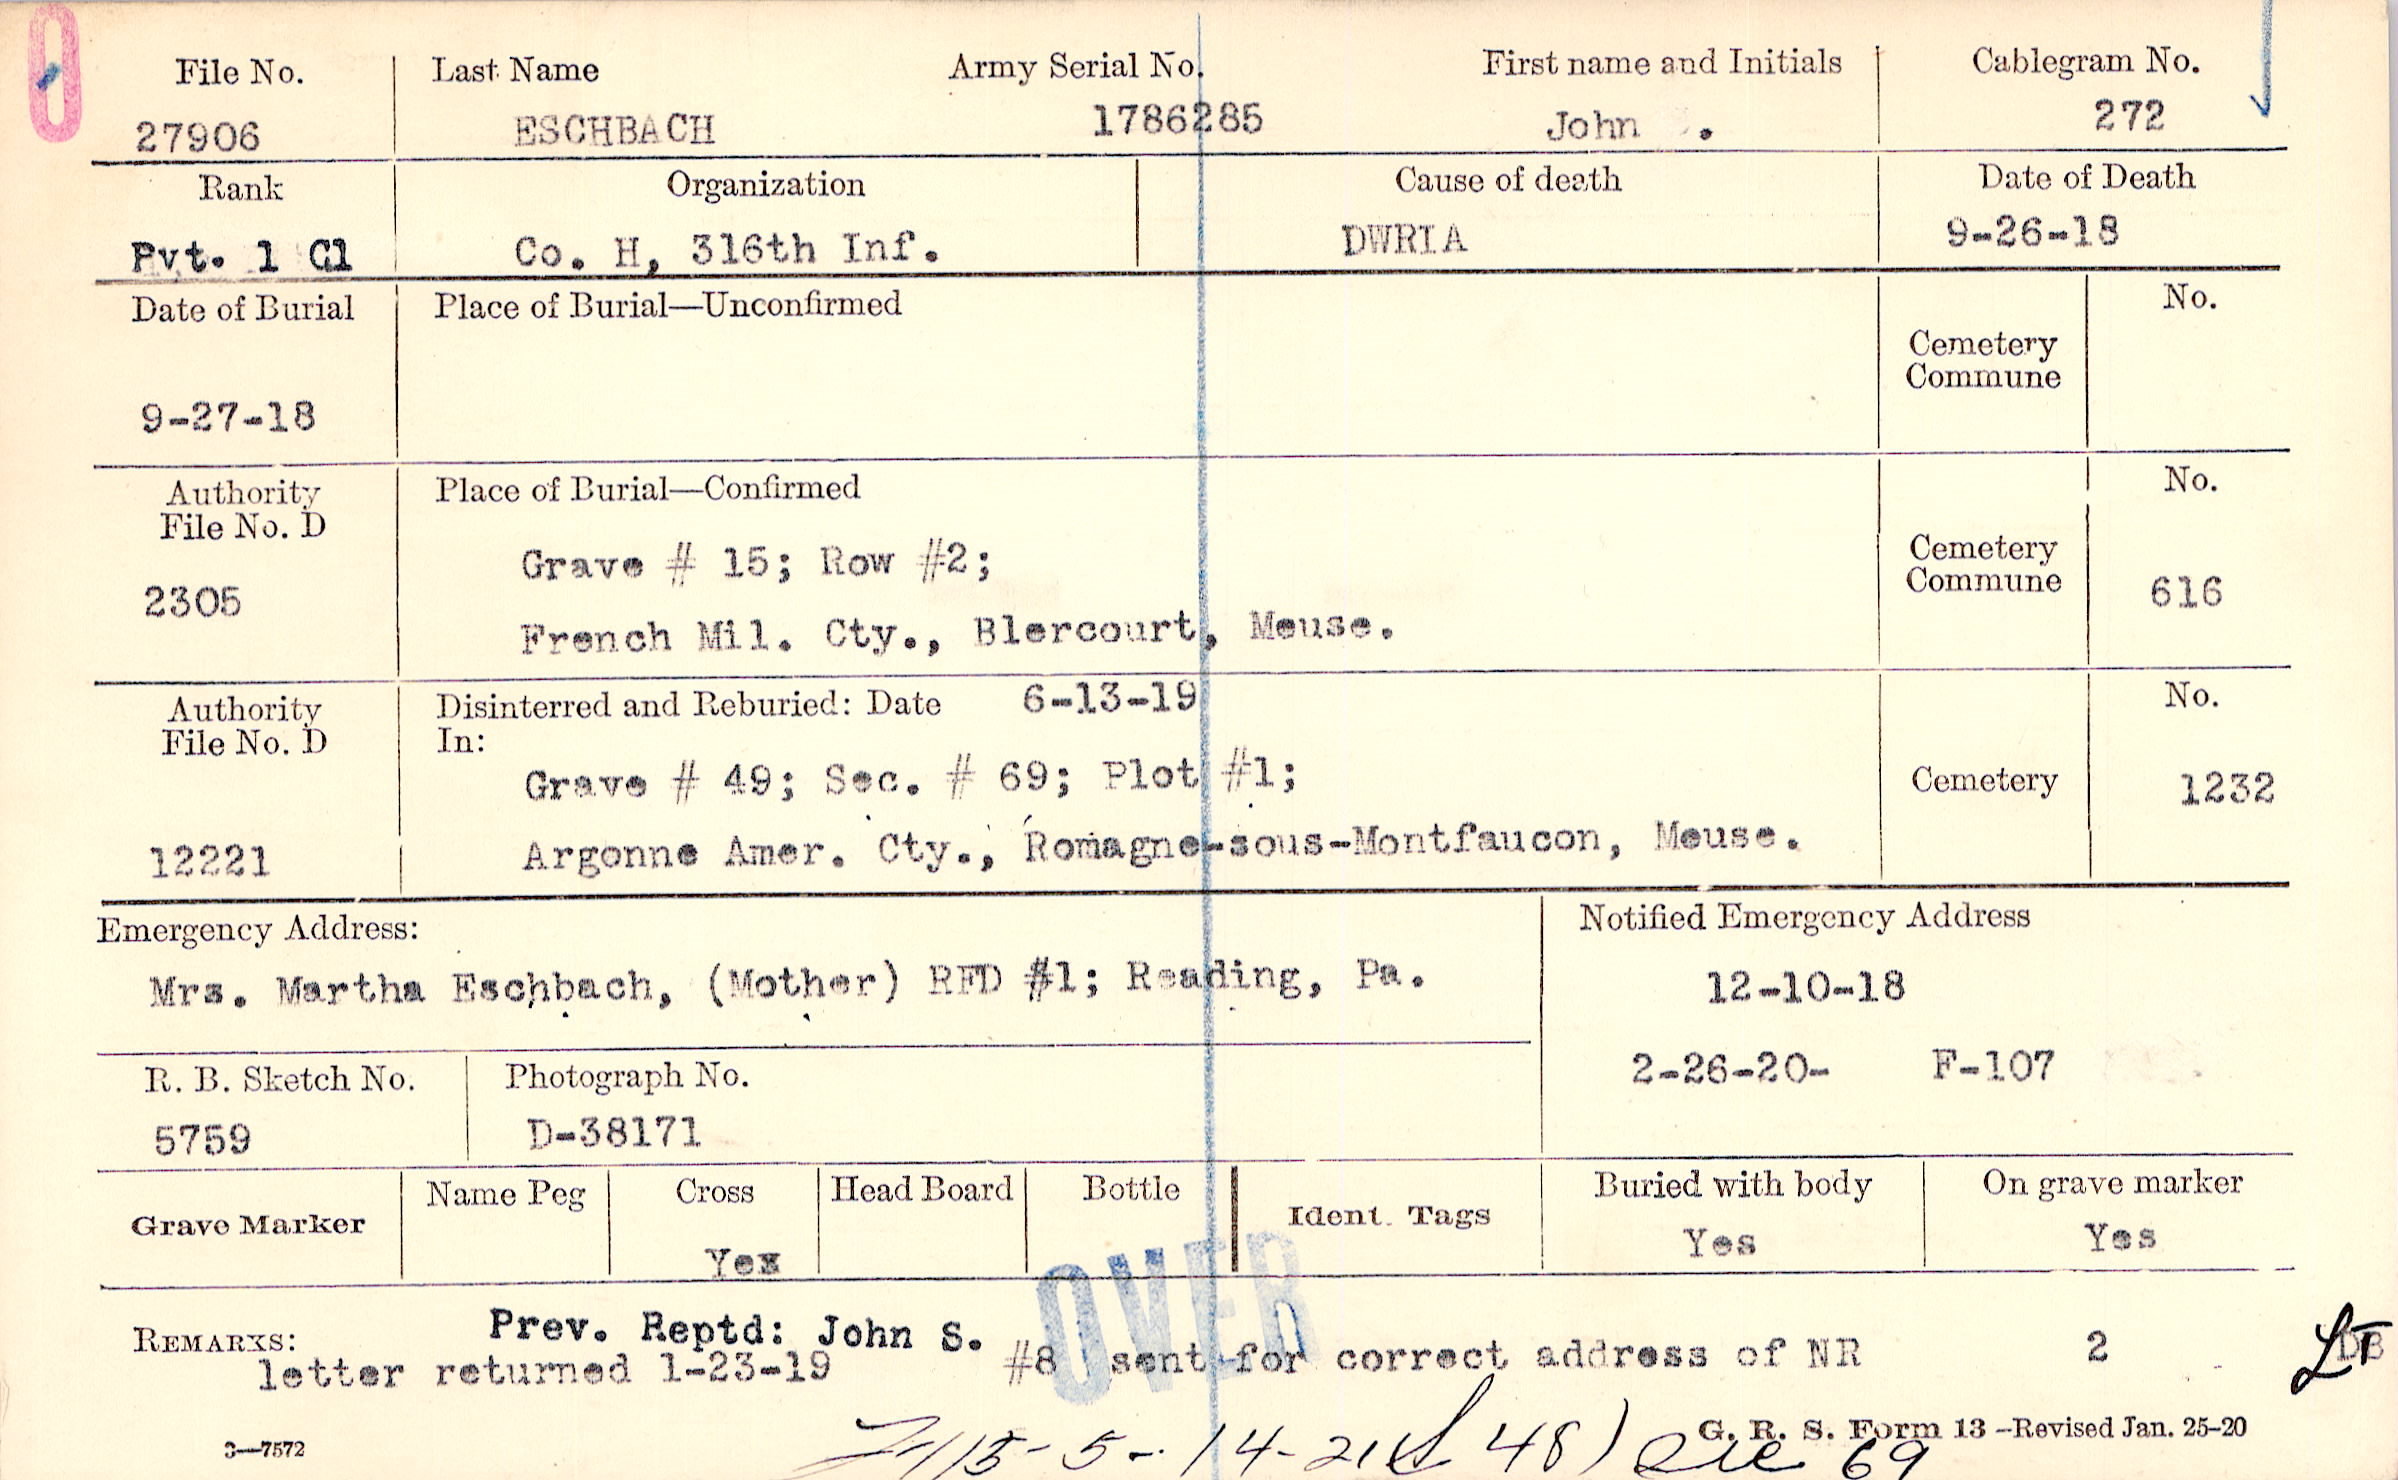 File No. Last Name Army Serial No. First name and Initials Cablegram No.
27906 ESCHBACH 1786285 John . 272
Rank Organization Cause of death Date of Death
Pvt. 1 Cl Co. H, 316th Inf. DWRIA 9-26-18
Date of Burial Place of Burial—Unconfirmed No.
Cemetery
Commune
9-27-18
Authority Place of Burial—Confirmed No.
File No. D
Grave # 15; Row #2; Cemetery
2305 Commune 616
French Mil. Cty., Blercourt, Meuse.
Authority Disinterred and Reburied: Date 6-13-19 No.
File No. D In:
Grave # 49; Sec. # 69; Plot #1; Cemetery 1232
12221 Argonne Amer. Cty., Romagne-sous-Montfaucon, Meuse.
Emergency Address: Notified Emergency Address
Mrs. Martha Eschbach, (Mother) RFD #1; Reading, Pa. 12-10-18
2-26-20- F-107
R. B. Sketch No. Photograph No.
5759 D-38171
Grave Marker Name Peg Cross Head Board Bottle Ident. Tags Buried with body On grave marker
Yex Yes Yes
OVER
REMARKS: Prev. Reptd: John S.
letter returned 1-23-19 #8 sent for correct address of NR 2
5-14-21 48) 69
3—7572 G. R. S. Form 13 -Revised Jan. 25-20